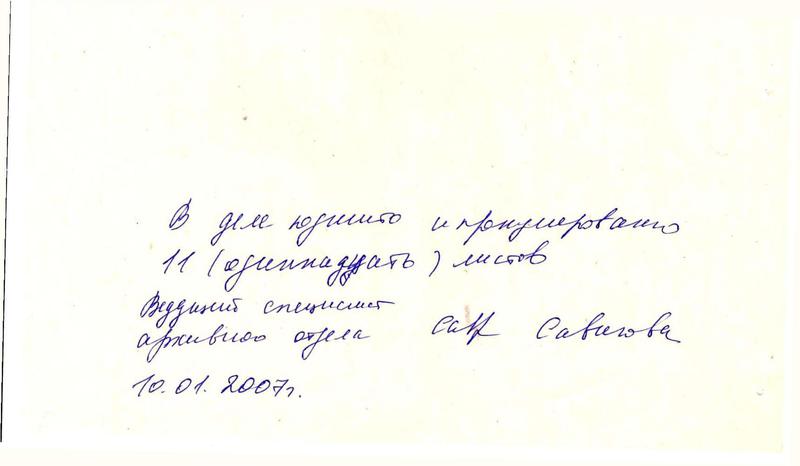 В деле подшито и пронумеровано
11 (одиннадцать) листов
Ведущий специалист
архивного отдела Савинова
10.01.2007г.